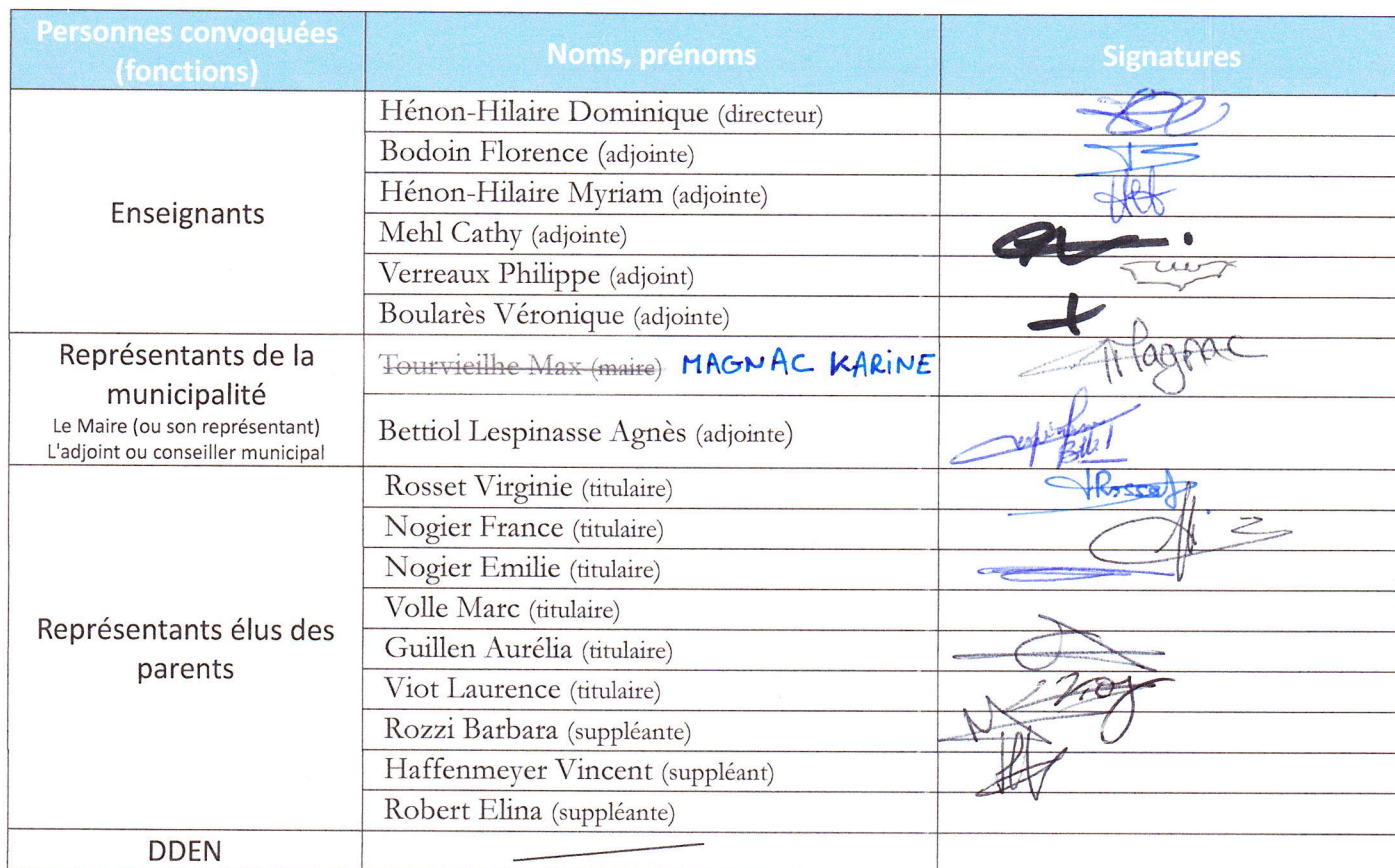 Personnes convoquées
(fonctions)
Noms, prénoms
Signatures
Enseignants
Hénon-Hilaire Dominique (directeur)
Bodoin Florence (adjointe)
Hénon-Hilaire Myriam (adjointe)
Mehl Cathy (adjointe)
Verreaux Philippe (adjoint)
Boularès Véronique (adjointe)
Représentants de la
municipalité
Le Maire (ou son représentant)
L'adjoint ou conseiller municipal
Tourvieilhe Max (maire) MAGNAC KARINE
Magnac
Bettiol Lespinasse Agnès (adjointe)
Représentants élus des
parents
Rosset Virginie (titulaire)
Rosset
Nogier France (titulaire)
Nogier Emilie (titulaire)
Volle Marc (titulaire)
Guillen Aurélia (titulaire)
Viot Laurence (titulaire)
Rozzi Barbara (suppléante)
Haffenmeyer Vincent (suppléant)
Robert Elina (suppléante)
DDEN